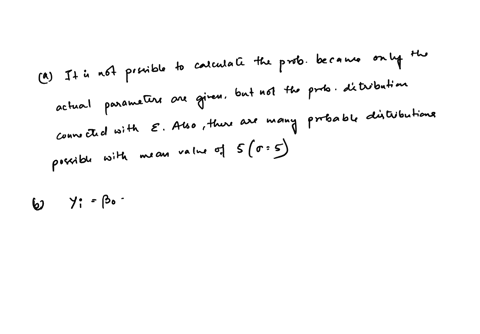 (a) It is not possible to calculate the prob. because only the
actual parameters are given, but not the prob. distribution
connected with ε. Also, there are many probable distributions
possible with mean value of 5 (σ=5)
b) Yi = β0 .